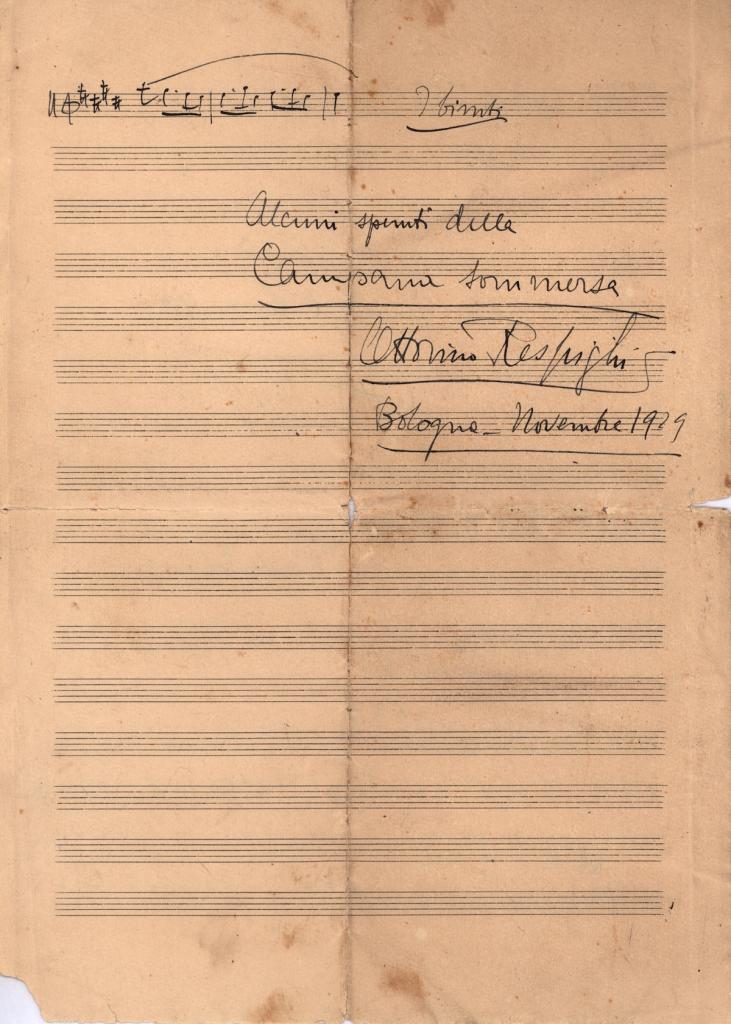 I bimbi
Alcuni spunti della
Campana sommersa
Ottorino Respighi
Bologna - Novembre 1929